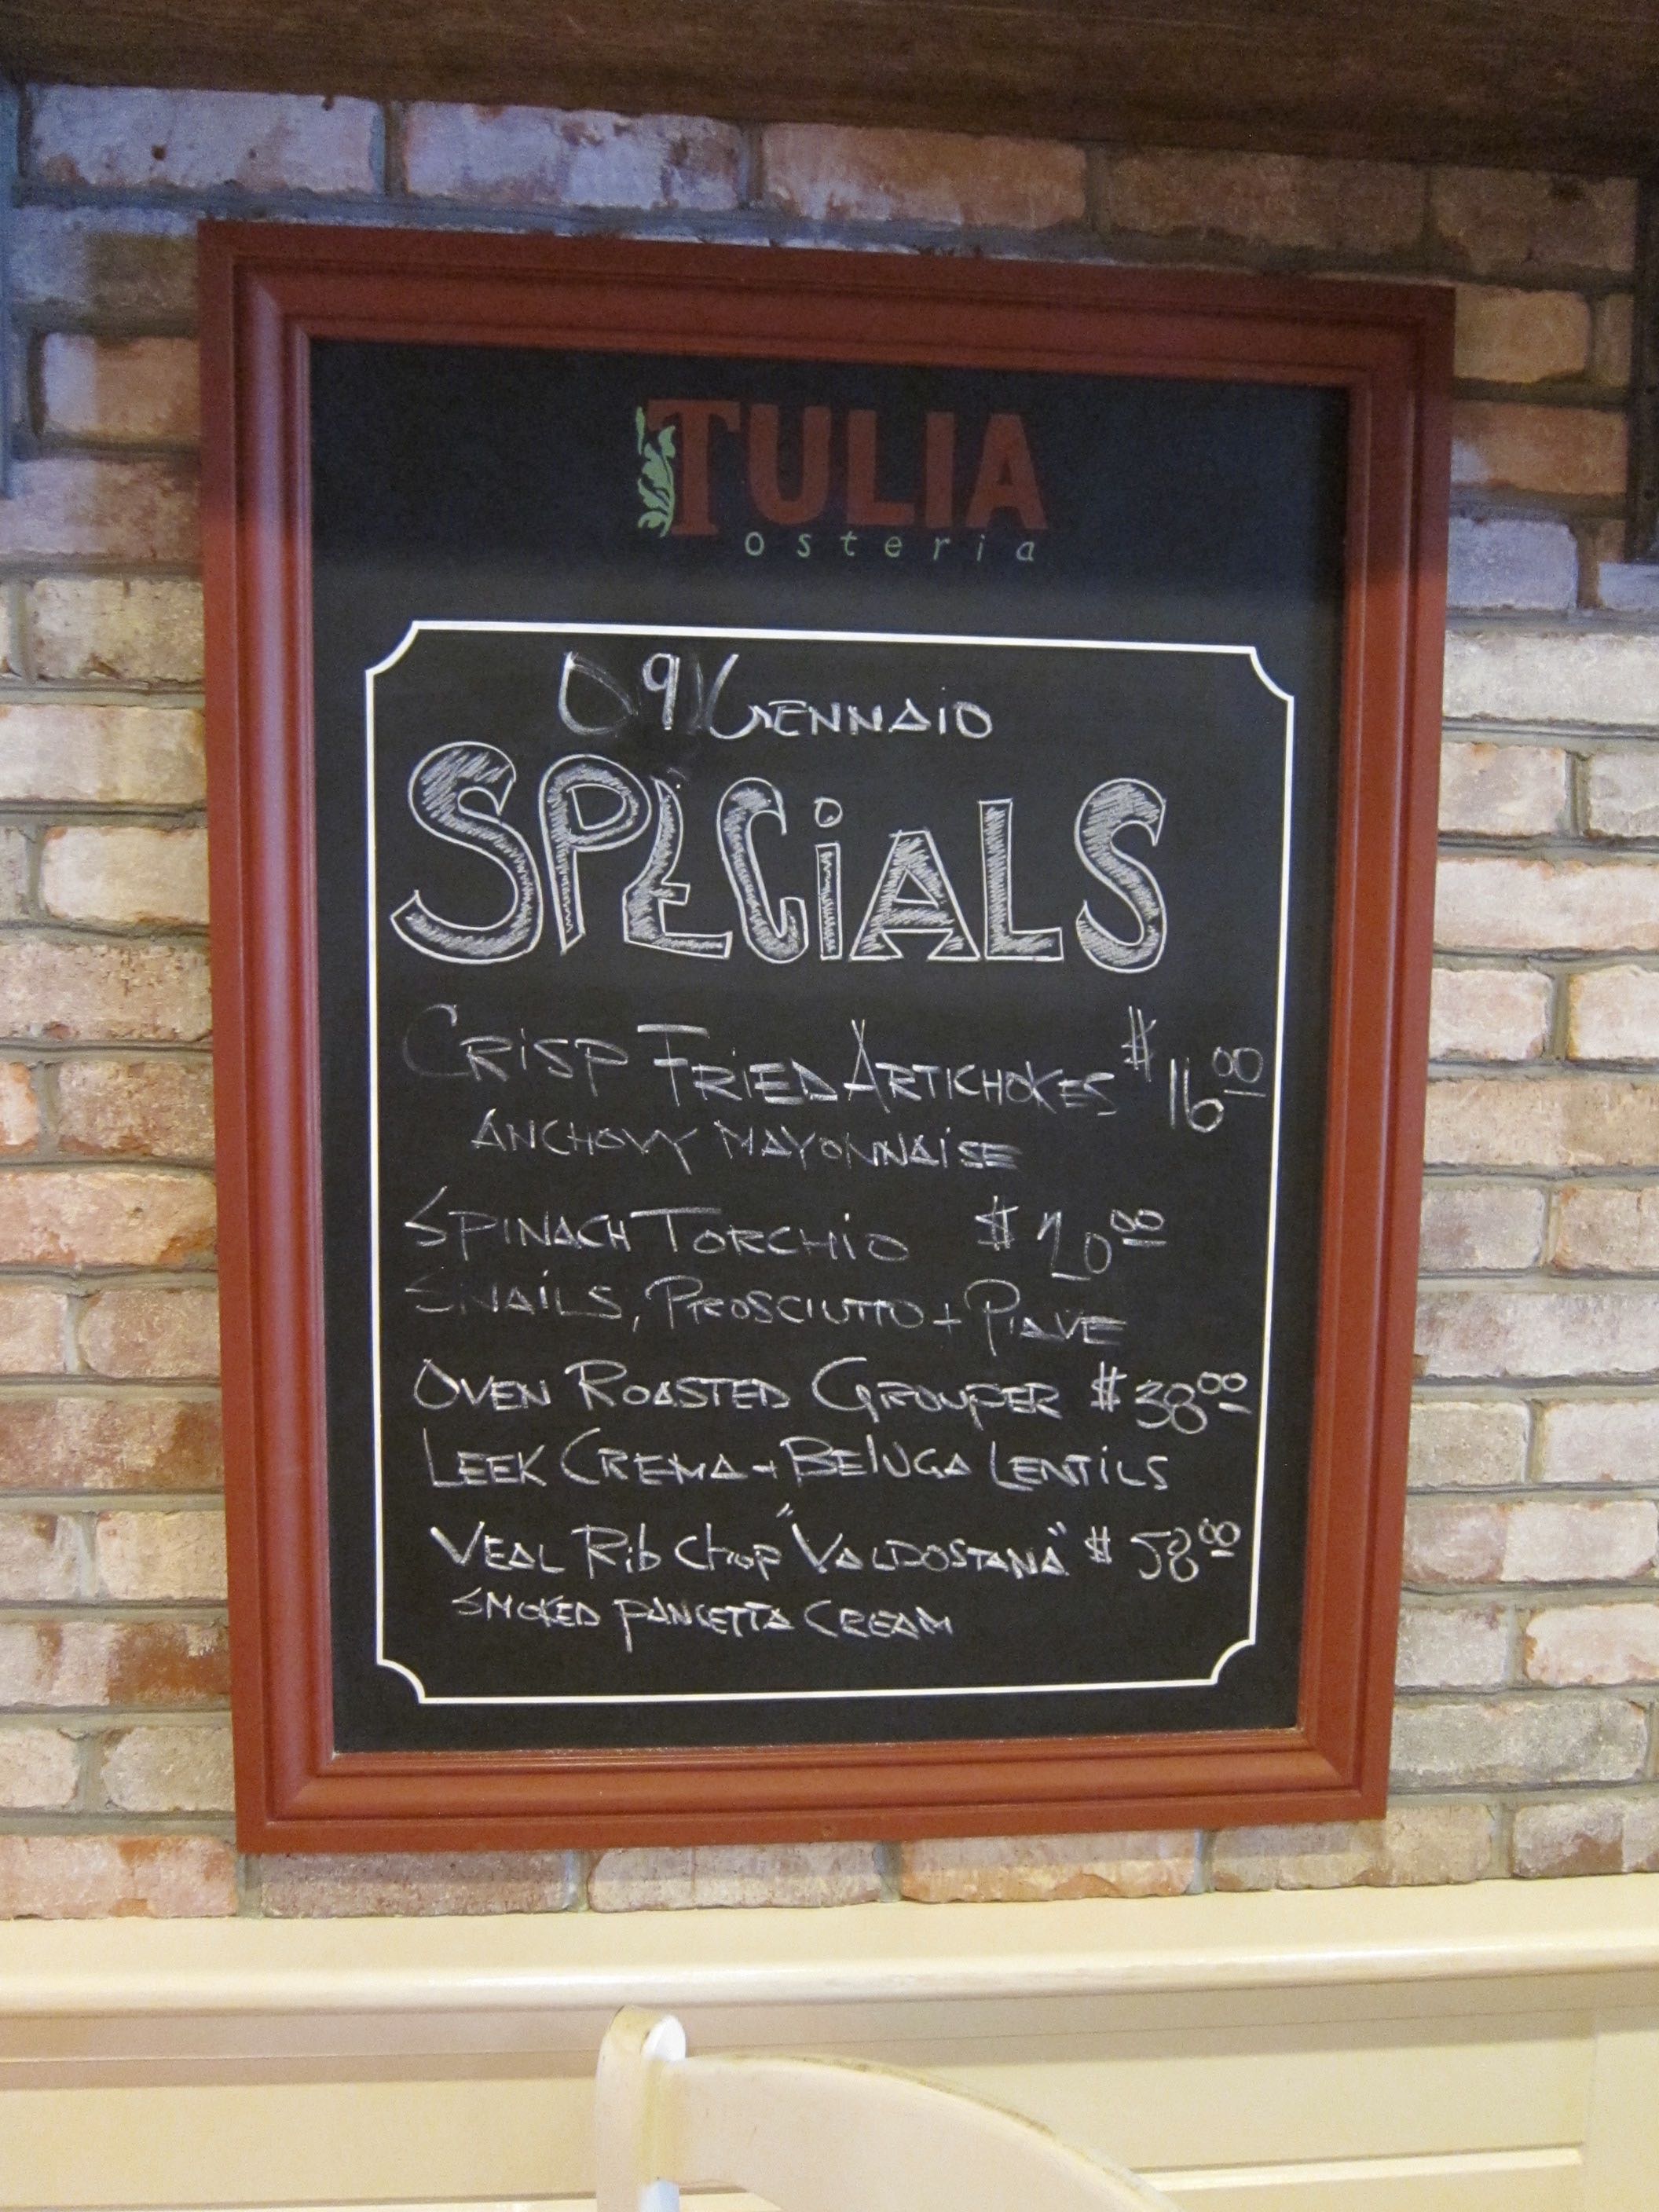 TULIA
osteria
09 GENNAIO
SPECiALS
CRiSP FRIED ARTICHOKES $16.00
ANCHOVY MAYONNAiSE
SPINACH TORCHiO $20.00
SNAiLS, PROSCIUTTO + PIAVE
OVEN ROASTED GROUPER $38.00
LEEK CREMA + BElUGA LENTiLS
VEAL Rib Chop "VALDOSTANA" $58.00
SMOKED PANCETTA CREAM